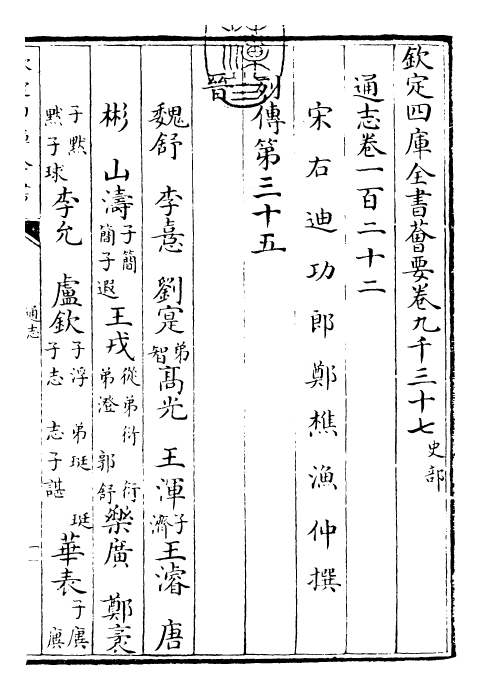 欽定四庫全書薈要卷九千三十七 史部
通志卷一百二十二
宋右迪功郎鄭樵漁仲撰
列傳第三十五
晉
魏舒 李憙 劉寔 弟智 高光 王渾 子濟 王濬 唐
彬 山濤 子簡 簡子遐 王戎 從弟衍 弟澄 衍 郭舒 樂廣 鄭袤
子默 默子球 李允 盧欽 子浮 弟珽 子志 珽 志子諶 華表 子廙 廙
通志